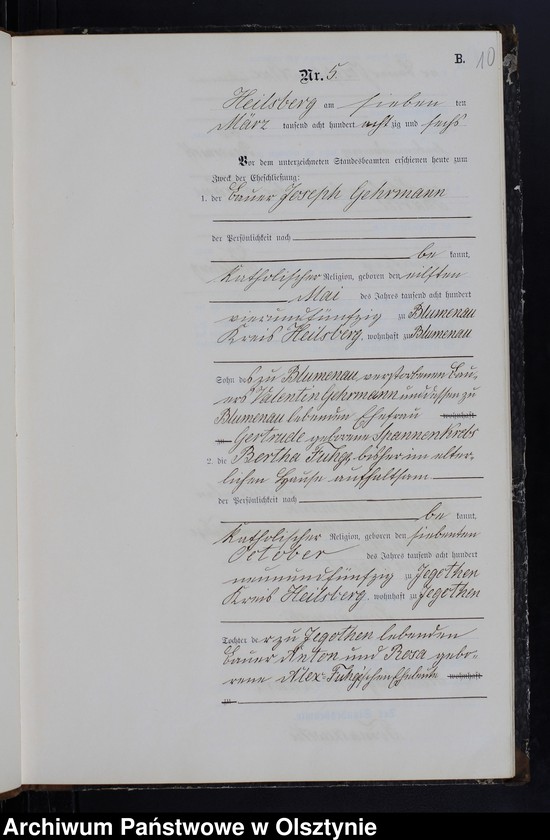 B. 10
Nr. 5
Heilsberg am sieben ten
März tausend acht hundert acht zig und sechs
Vor dem unterzeichneten Standesbeamten erschienen heute zum
Zweck der Eheschließung:
1. der Bauer Joseph Gehrmann
der Persönlichkeit nach
be kannt,
katholischer Religion, geboren den eilften
Mai des Jahres tausend acht hundert
vierundfünfzig zu Blumenau
Kreis Heilsberg, wohnhaft zu Blumenau
Sohn des zu Blumenau verstorbenen Bau-
ers Valentin Gehrmann und dessen zu
Blumenau lebenden Ehefrau wohnhaft
zu Gertrude geborene Spannenkrebs
2. die Bertha Fuhg, bisher im elter-
lichen Hause aufhaltsam
der Persönlichkeit nach
be kannt,
katholischer Religion, geboren den siebenten
October des Jahres tausend acht hundert
neunundfünfzig zu Jegothen
Kreis Heilsberg, wohnhaft zu Jegothen
Tochter der zu Jegothen lebenden
Bauer Anton und Rosa gebo-
rene Alex-Fuhg'schen Eheleute wohnhaft
zu
Archiwum Państwowe w Olsztynie